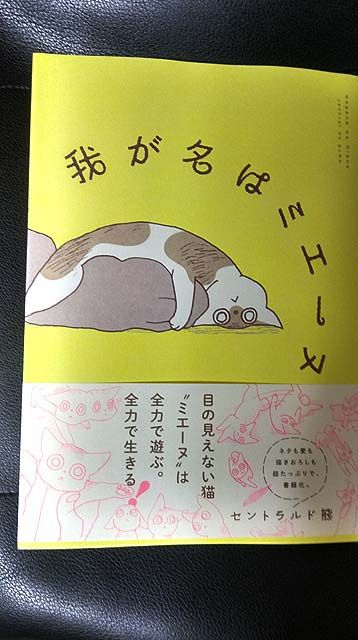 我が名はミエーヌ
目の見えない猫
〝ミエーヌ〟は
全力で遊ぶ。
全力で生きる!
ネタも愛も
描きおろしも
超たっぷりで、
書籍化。
セントラルド熊